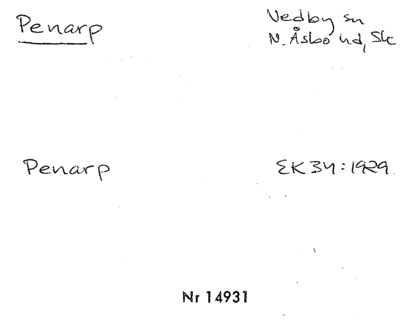 Penarp
Vedby sn
N. Åsbo hd, Sk
Penarp
EK 34:1929
Nr 14931